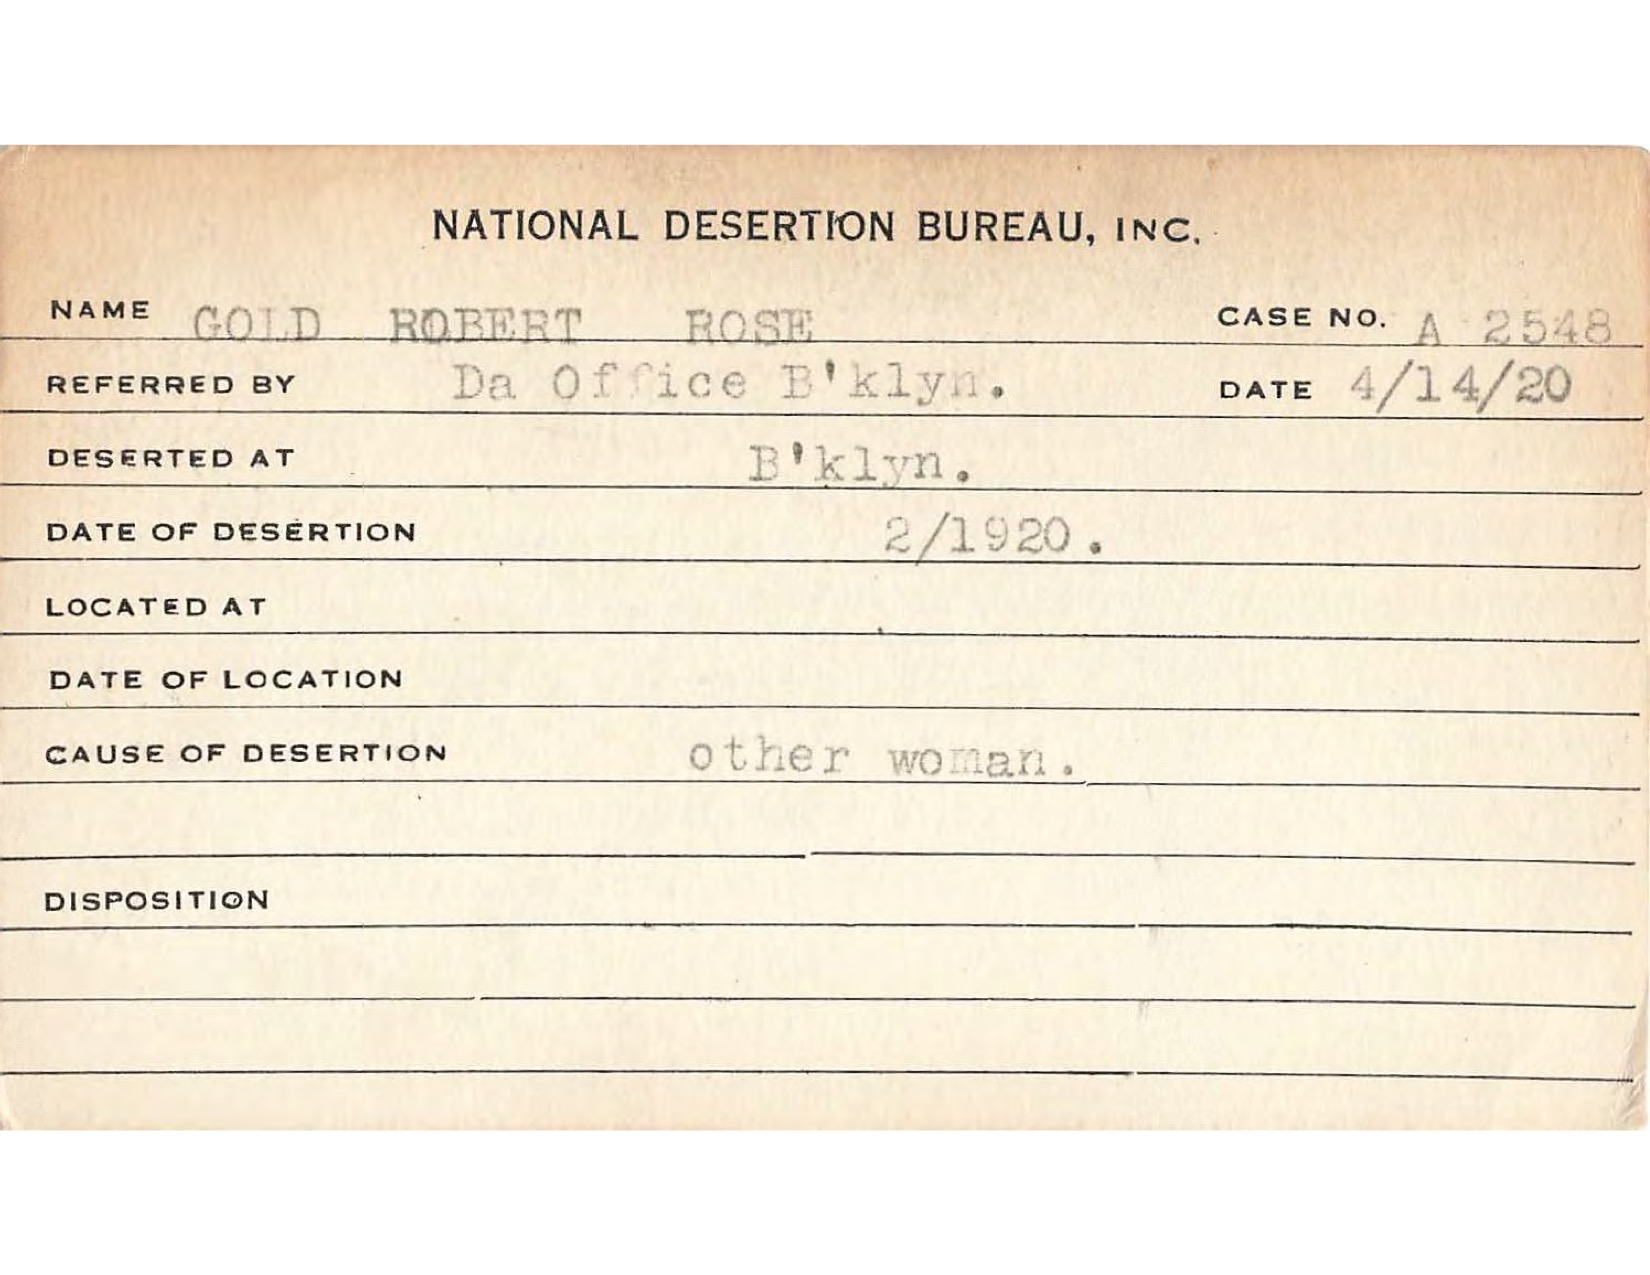 NATIONAL DESERTION BUREAU, INC.
NAME GOLD ROBERT ROSE CASE NO. A 2548
REFERRED BY Da Office B'klyn. DATE 4/14/20
DESERTED AT B'klyn.
DATE OF DESERTION 2/1920.
LOCATED AT
DATE OF LOCATION
CAUSE OF DESERTION other woman.
DISPOSITION